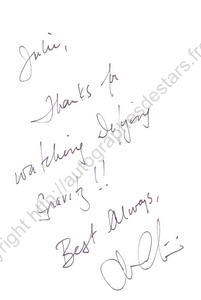 Julie,
Thanks for
watching Defying
Gravity!!
Best Always,
copyright http://autographesdestars.fr